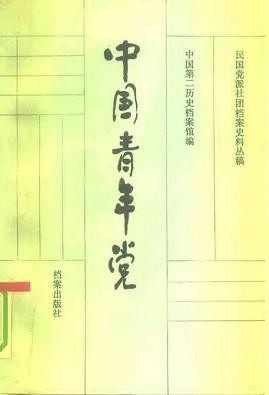 民国党派社团档案史料丛稿
中国第二历史档案馆编
中国青年党
档案出版社